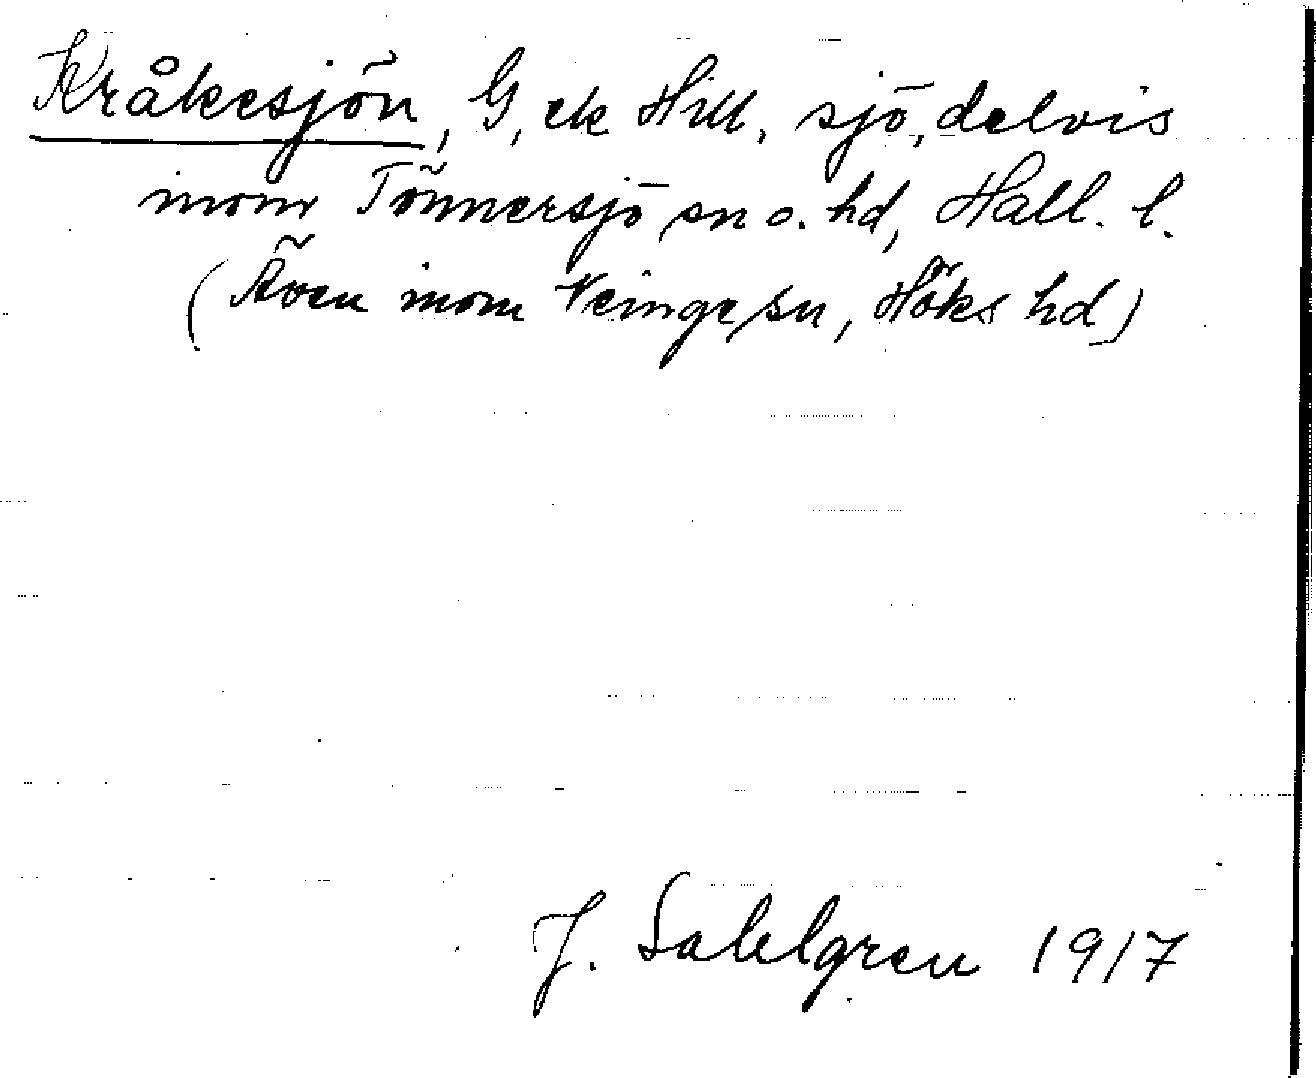 Kråkesjön, G, ek Hill, sjö, delvis
inom Tönnersjö sn o. hd, Hall. l.
(Även inom Veinge sn, Höks hd)
J. Sahlgren 1917